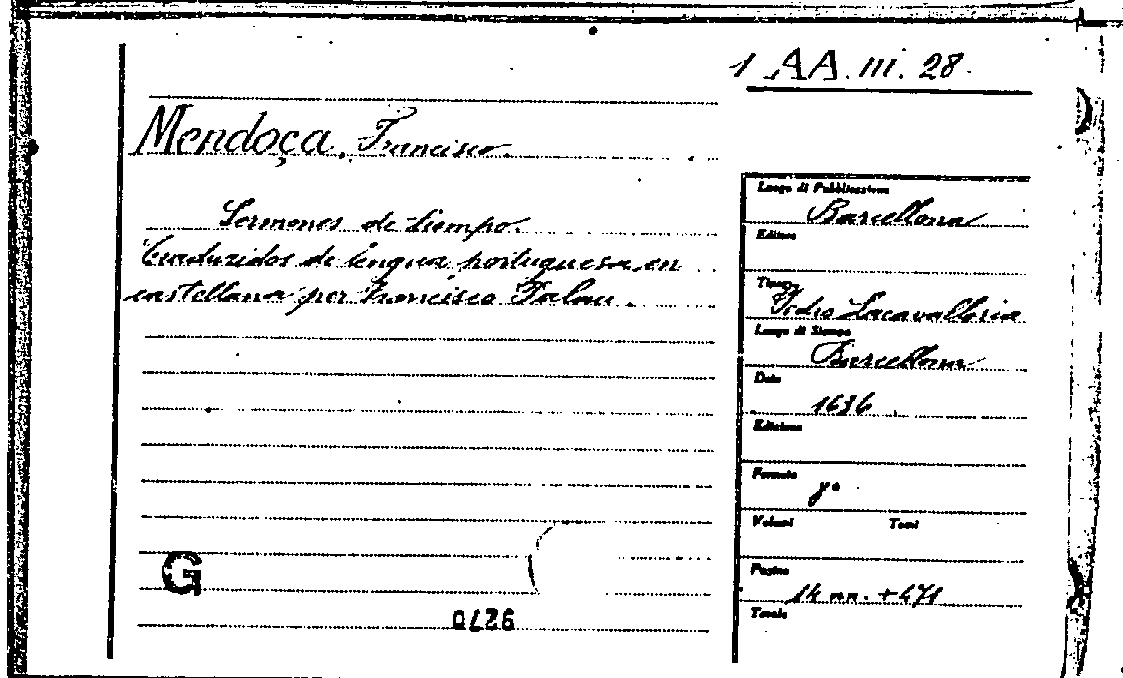 1 AA.III.28.
Mendoça, Francisco.
Sermones de tiempo.
traduzidos de lengua portuguesa en
castellana por Francisco Palau.
Luogo di Pubblicazione
Barcellona
Editore
Tipogr.
Pedro Lacavalleria
Luogo di Stampa
Barcellona
Data
1636
Edizione
Formato
8°
Volumi Tomi
Pagine
14 nn. + 471
Tavole
G